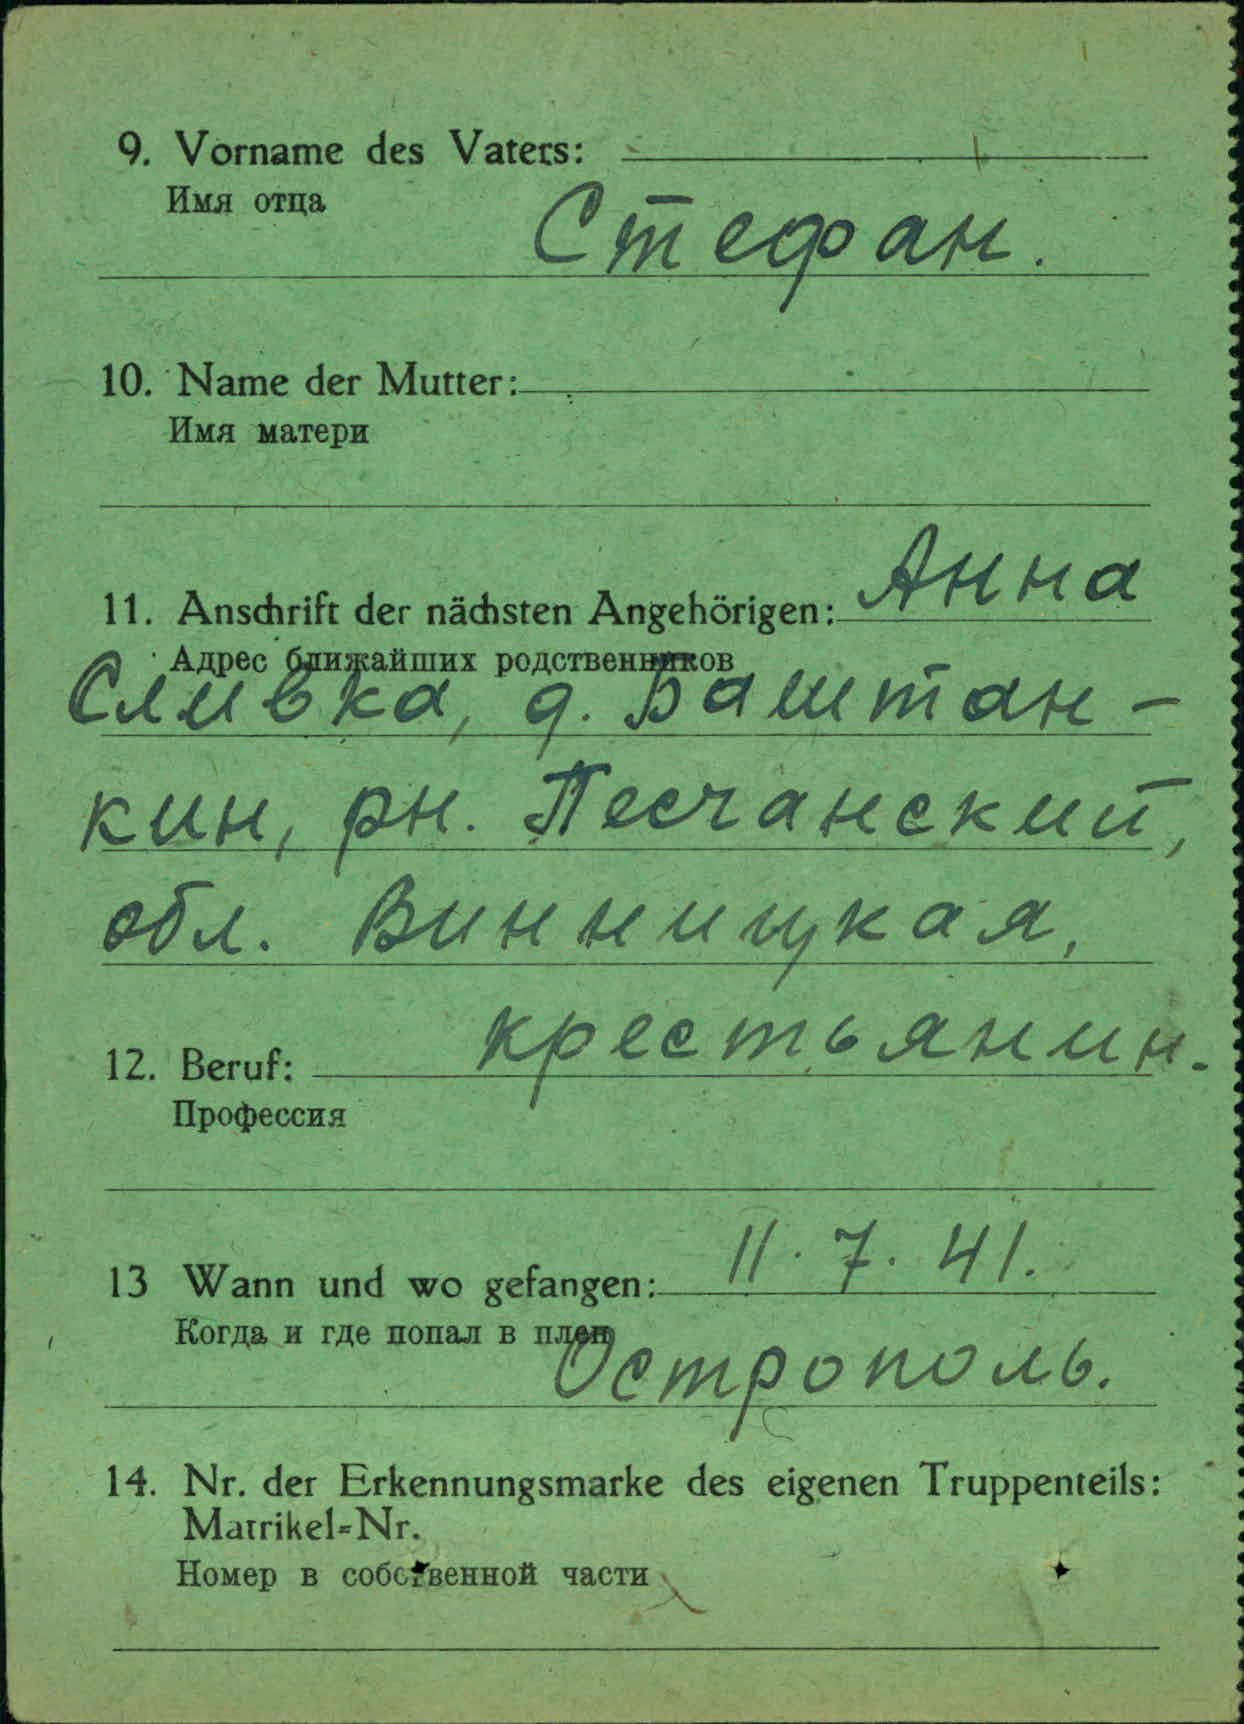 9. Vorname des Vaters:
Имя отца
Стефан.
10. Name der Mutter:
Имя матери
Анна
11. Anschrift der nächsten Angehörigen:
Адрес ближайших родственников
Сливка, д. Баштан-
кин, рн. Песчанский,
обл. Винницкая,
крестьянин.
12. Beruf:
Профессия
11. 7. 41.
13 Wann und wo gefangen:
Когда и где попал в плен
Острополь.
14. Nr. der Erkennungsmarke des eigenen Truppenteils:
Matrikel-Nr.
Номер в собственной части